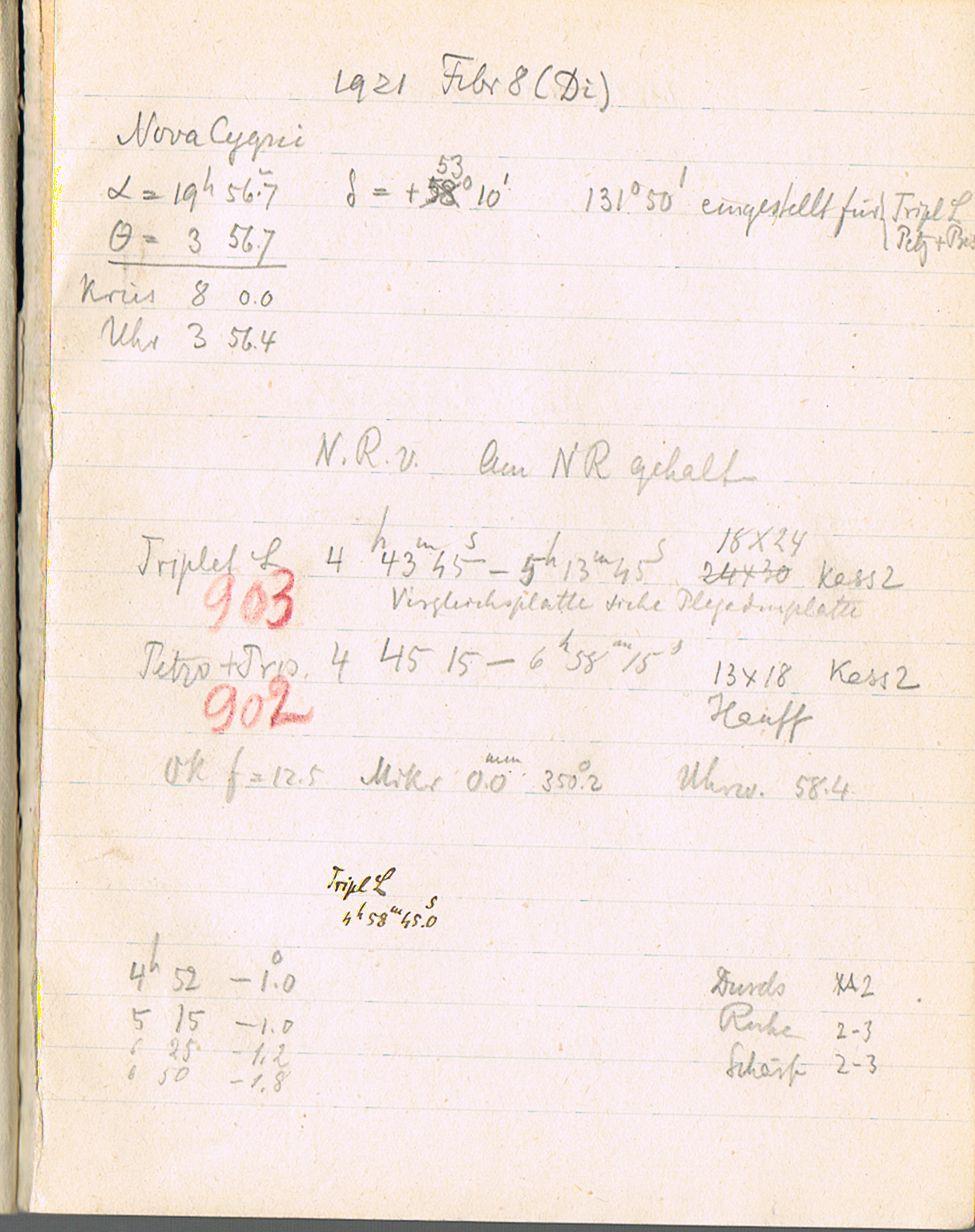 1921 Febr 8 (Di)
Nova Cygni
α = 19h 56.m7 δ = +53° 10' 131° 50' eingestellt für { Tripl L
Θ = 3 56.7 Petz +
Kreis 8 0.0
Uhr 3 56.4
N.R.v. Am NR gehalt
Triplet L 4h 43m 45s – 5h 13m 45s 18X24
24x30 Kass 2
903 Vergleichsplatte siehe Plejadenplatte
Petzv + Trip. 4 45 15 – 6h 58m 15s 13x18 Kass 2
902 Hauff
OK f = 12.5 Mikr 0.0mm 350.°2 Uhrw. 58.4
Tripl L
4h 58m 45.s0
4h 52 –1.°0 Durchs 2
5 15 –1.0 Ruhe 2-3
6 25 –1.2 Schärfe 2-3
6 50 –1.8